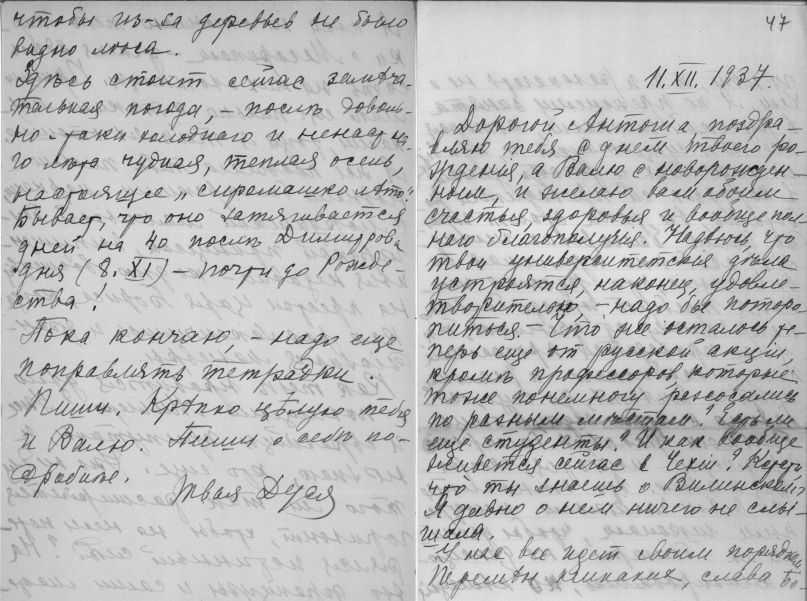 чтобы из-за деревьев не было
видно леса.
Здѣсь стоит сейчас замѣча-
тельная погода, – послѣ доволь-
но-таки холоднаго и ненастна-
го лѣта чудная, теплая осень,
настоящее „сиромашко лѣто".
Бывает, что оно затягивается
дней на 40 послѣ Димитрова
дня (8.XI) – почти до Рожде-
ства!
Пока кончаю, – надо еще
поправлять тетрадки.
Пиши. Крѣпко цѣлую тебя
и Валю. Пиши о себѣ по-
дробнѣе.
Твоя Дуся
47
11.XII.1937.
Дорогой Антоша, поздра-
вляю тебя с днем твоего ро-
ждения, а Валю с новорожден-
ным, и желаю вам обоим
счастья, здоровья и вообще пол-
наго благополучия. Надѣюсь, что
твои университетския дѣла
устроятся, наконец, удовле-
творительно, – надо бы поторо-
питься. – Что же осталось те-
перь еще от русской акции,
кромѣ профессоров, которые
тоже понемногу разсосались
по разным мѣстам? Есть ли
еще студенты? И как вообще
живется сейчас в Чехии? Кстати
что ты знаешь о Вилинском?
Я давно о нем ничего не слы-
шала.
У нас все идет своим порядком
Перемѣн никаких, слава Бо-